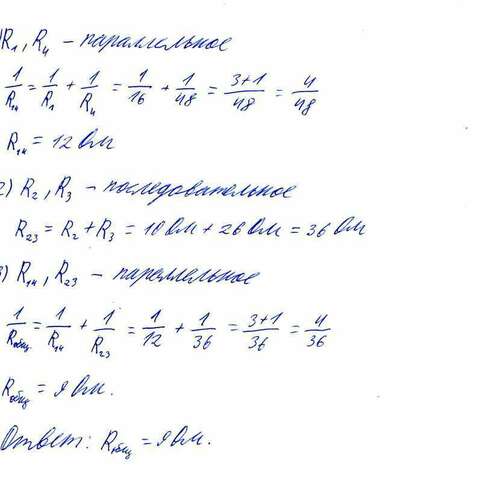 ) R₁, R₄ – параллельное
1/R₁₄ = 1/R₁ + 1/R₄ = 1/16 + 1/48 = 3+1/48 = 4/48
R₁₄ = 12 Ом
2) R₂, R₃ – последовательное
R₂₃ = R₂ + R₃ = 10 Ом + 26 Ом = 36 Ом
3) R₁₄, R₂₃ – параллельное
1/Rобщ = 1/R₁₄ + 1/R₂₃ = 1/12 + 1/36 = 3+1/36 = 4/36
Rобщ = 9 Ом.
Ответ: Rобщ = 9 Ом.